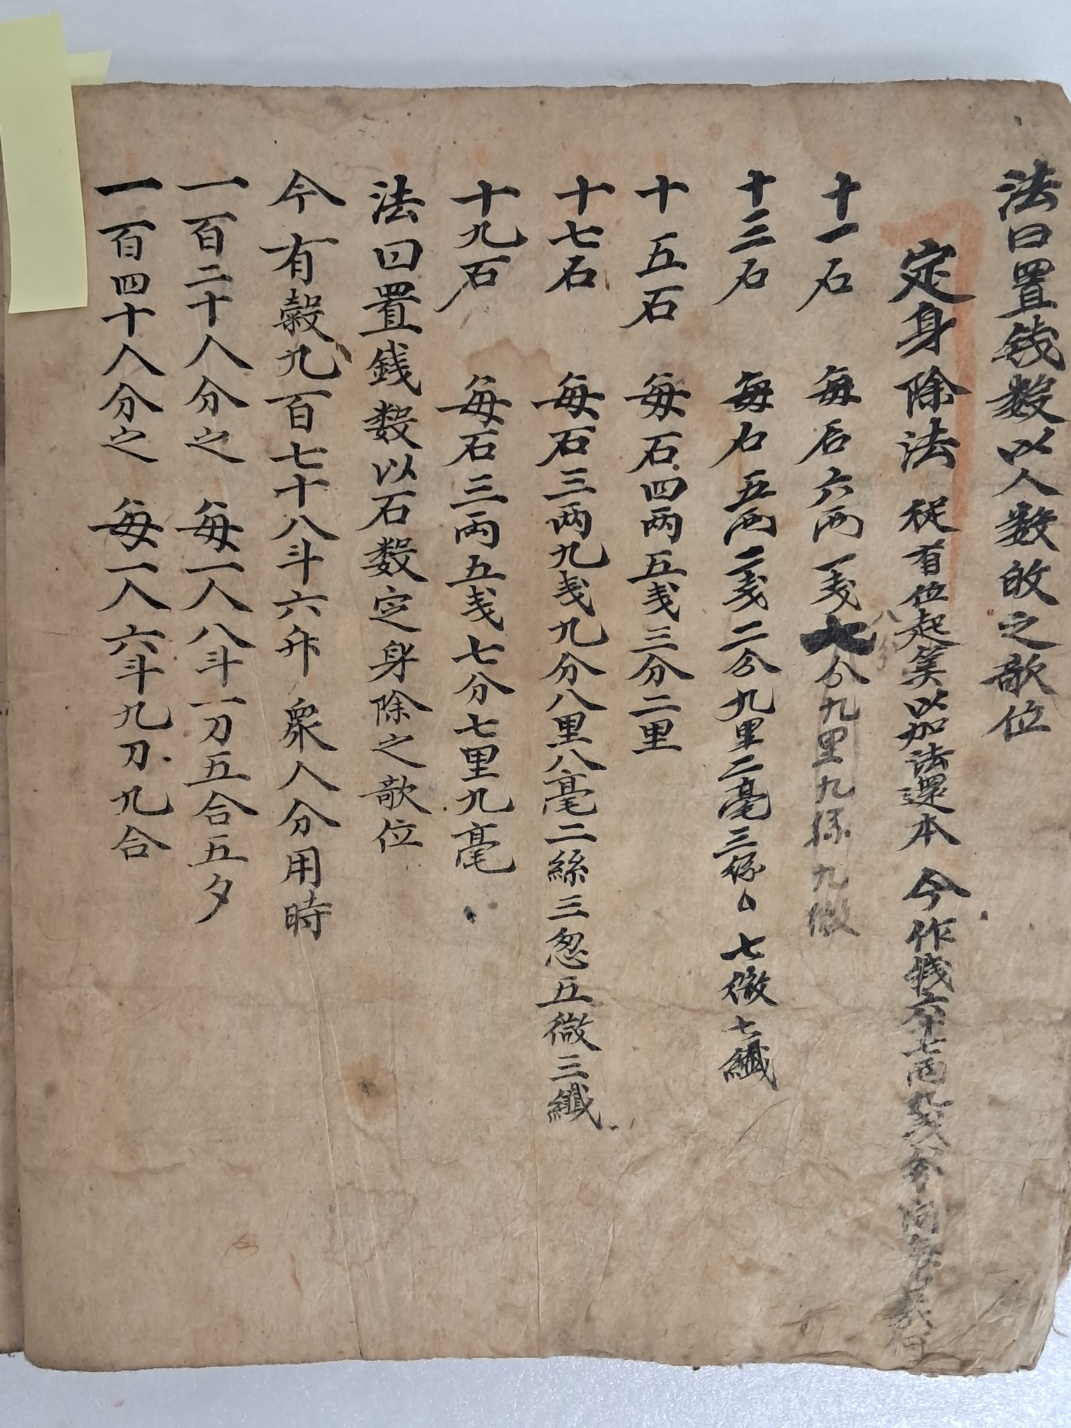 法曰置銭数以人数㪣之歌位
定身除法 從有位起筭以加法還本 今作銭六十七両九戋八分問每石
十一石 每石六両一戋七分九里九絲九微
八分
十三石 每石五両二戋二分九里二毫三絲 七微七纖
十五石 每石四両五戋三分二里
十七石 每石三両九戋九分八里八毫二絲三忽五微三纖
十九石 每石三両五戋七分七里九毫
法曰置銭数以石数定身除之歌位
今有穀九百七十八斗六升 衆人分用時
一百二十人分之 每一人八斗一刀五合五夕
一百四十人分之 每一人六斗九刀九合